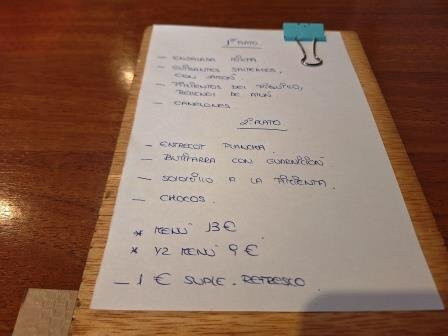 1º PLATO
- ENSALADA MIXTA
- GUISANTES SALTEADOS,
CON JAMÓN.
- PIMIENTOS DEL PIQUILLO,
RELLENOS DE ATÚN
- CANELONES
2º PLATO
- ENTRECOT PLANCHA.
- BUTIFARRA CON GUARNICIÓN
- SOLOMILLO A LA PIMIENTA.
- CHOCOS.
* MENÚ 13€
* 1/2 MENÚ 9€
- 1 € SUPLE. REFRESCO